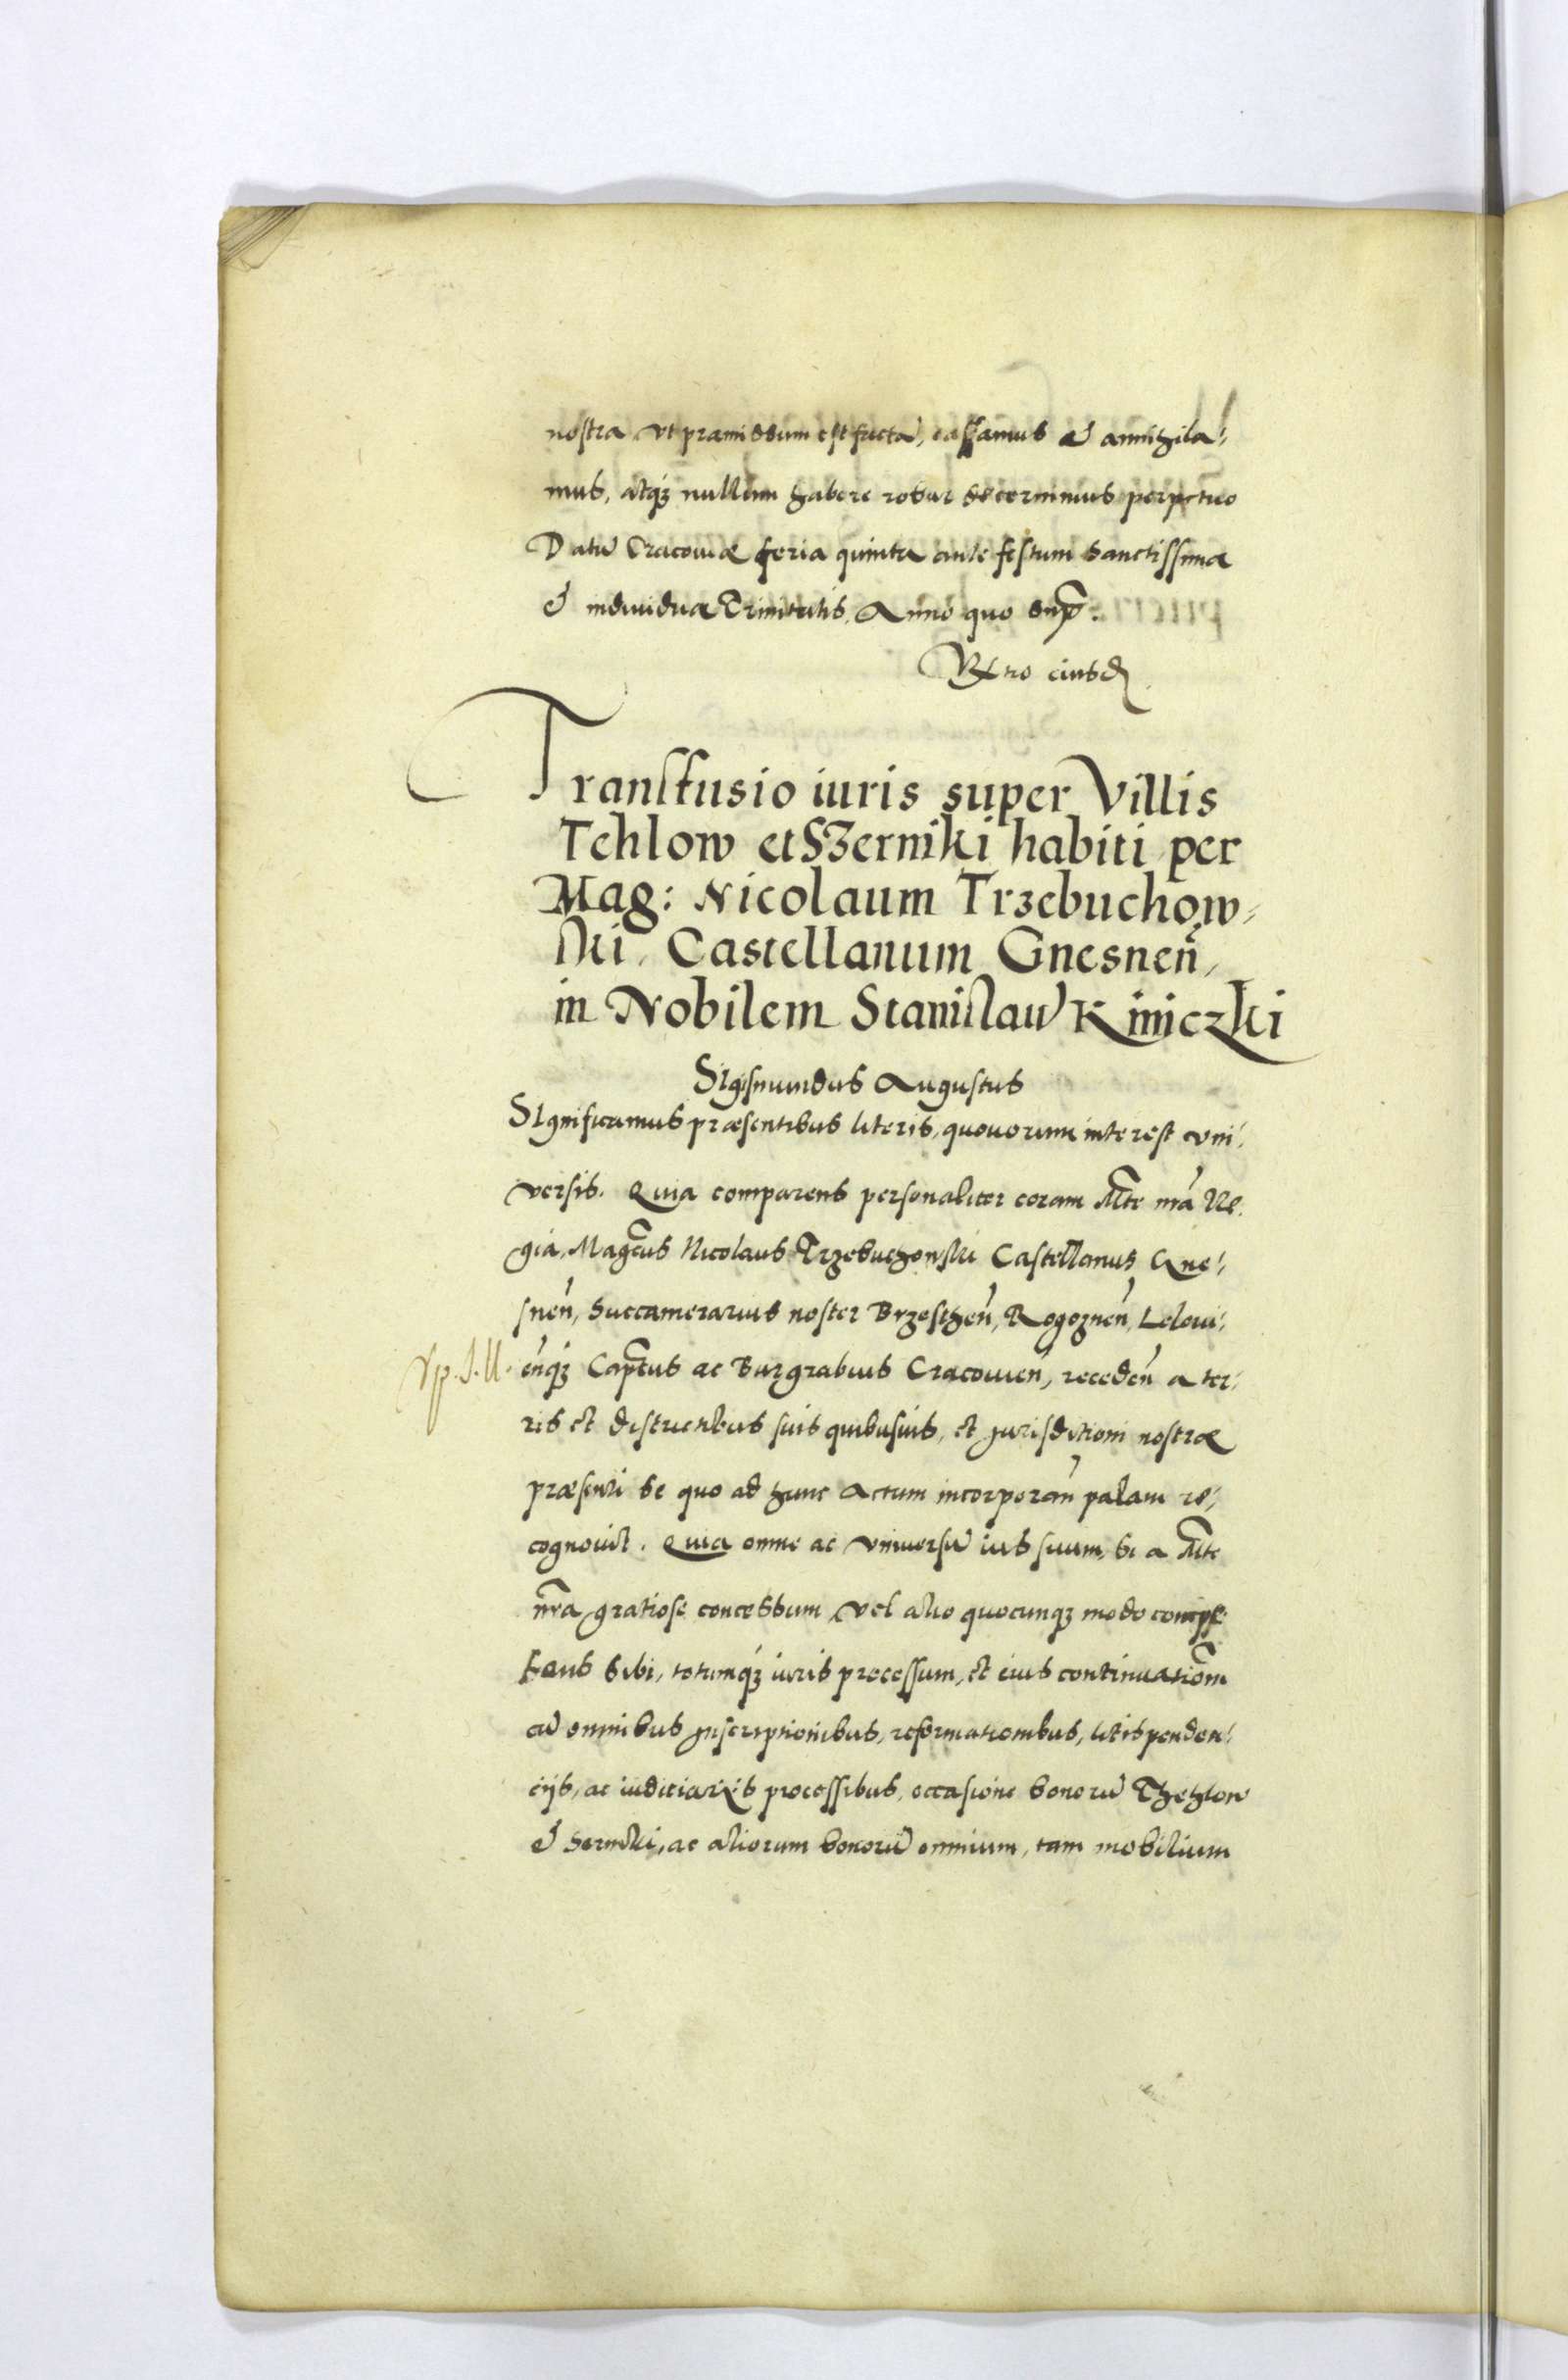 nostra vt præmissum est facta, cassamus et annihila⸗
mus, atq́ꝫ nullum habere robur decernimus perpetuo
Datu̅ Cracouiæ feria quinta ante festum Sanctissimæ
et indiuiduæ Trinitatis. Anno quo sup̅.
Rx̅ro eiusd̅
Transfusio iuris super Villis
Tehlow et Szerniki habiti per
Mag: Nicolaum Trzebuchow⸗
ski, Castellanum Gnesnen̅,
in Nobilem Stanislau̅ Kiniczki
Sigismundus Augustus
Significamus præsentibus literis, quouorum interest vni⸗
versis. Quia comparens personaliter coram Mte̅ nra̅ Re⸗
gia, Magc̅us Nicolaus Trzebuchowski Castellanus Gne⸗
snen̅, Succamerarius noster Brzesthen̅, Rogoznen̅, Lelouι⸗
en̅q́ꝫ Capt̅eus ac Burgrabius Cracouien̅, receden̅ a ter⸗
ris et districtibus suis quibusuis, et jurisditioni nostræ
præsenti se quo ad hunc actum incorporan̅ palam re⸗
cognouit. Quia omne ac vniuersu̅ ius suum, se a Mte̅
nra̅ gratiose concessum vel alio quocunqꝫ modo compe
tens sibi, totumq́ꝫ iuris processum, et eius continuatio̅m
cu̅ omnibus jnscriptionibus, reformationibus, litispenden⸗
cijs, ac iuditiarijs processibus, occasione bonoru̅ Thehlow
et Serniki, ac aliorum bonoru̅ omnium, tam mobilium